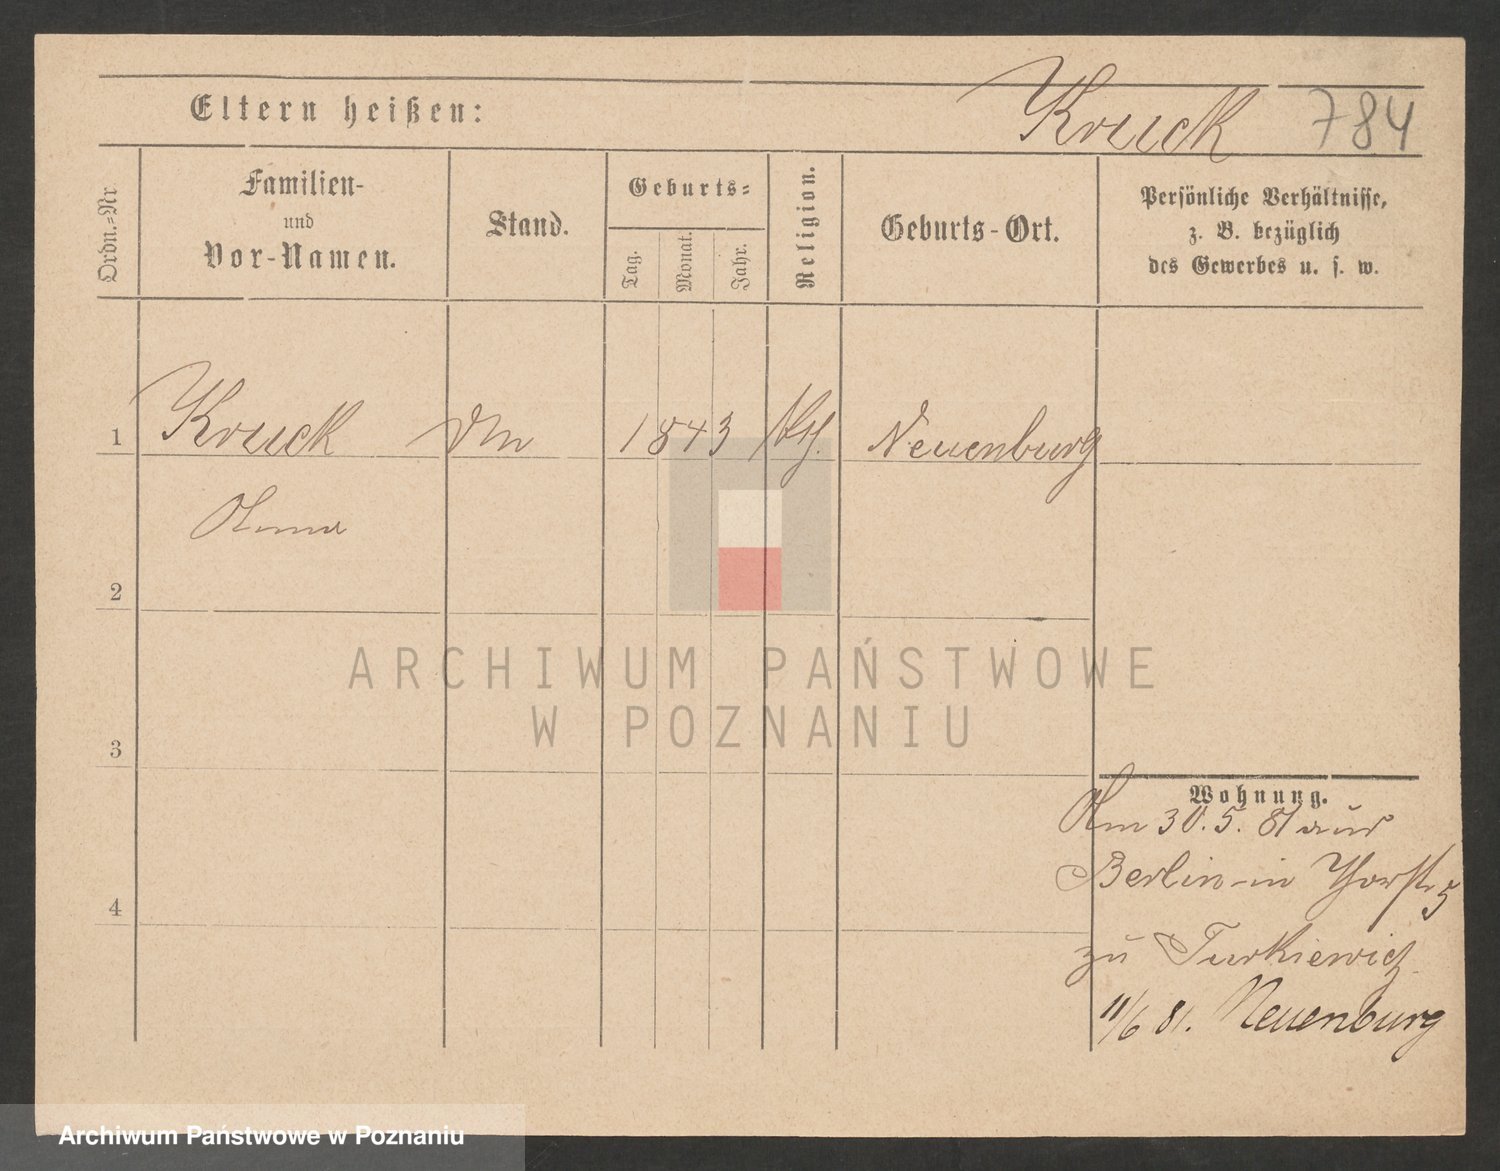 Eltern heißen:
Kruck 784
Ordn.-Nr
Familien-
und
Vor-Namen.
Stand.
Geburts-
Tag.
Monat.
Jahr.
Religion.
Geburts-Ort.
Persönliche Verhältnisse,
z. B. bezüglich
des Gewerbes u. s. w.
1 Kruck 1843 Neuenburg
Anna
2
3
4
ARCHIWUM PAŃSTWOWE
W POZNANIU
Wohnung.
Am 30. 5. 81 aus
Berlin in 5
zu Turkiewicz
11/6 81. Neuenburg
Archiwum Państwowe w Poznaniu